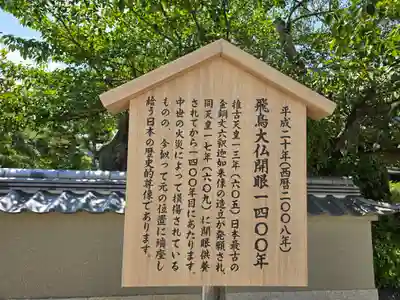 平成二十年（西暦二〇〇八年）
飛鳥大仏開眼一四〇〇年
推古天皇一三年（六〇五）日本最古の
金銅丈六釈迦如来像の造立が発願され
同天皇一七年（六〇九）に開眼供養
されてから一四〇〇年目にあたります。
中世の火災によって損傷されている
ものの、今以って元の位置に端座し
給う日本の歴史的尊像であります。